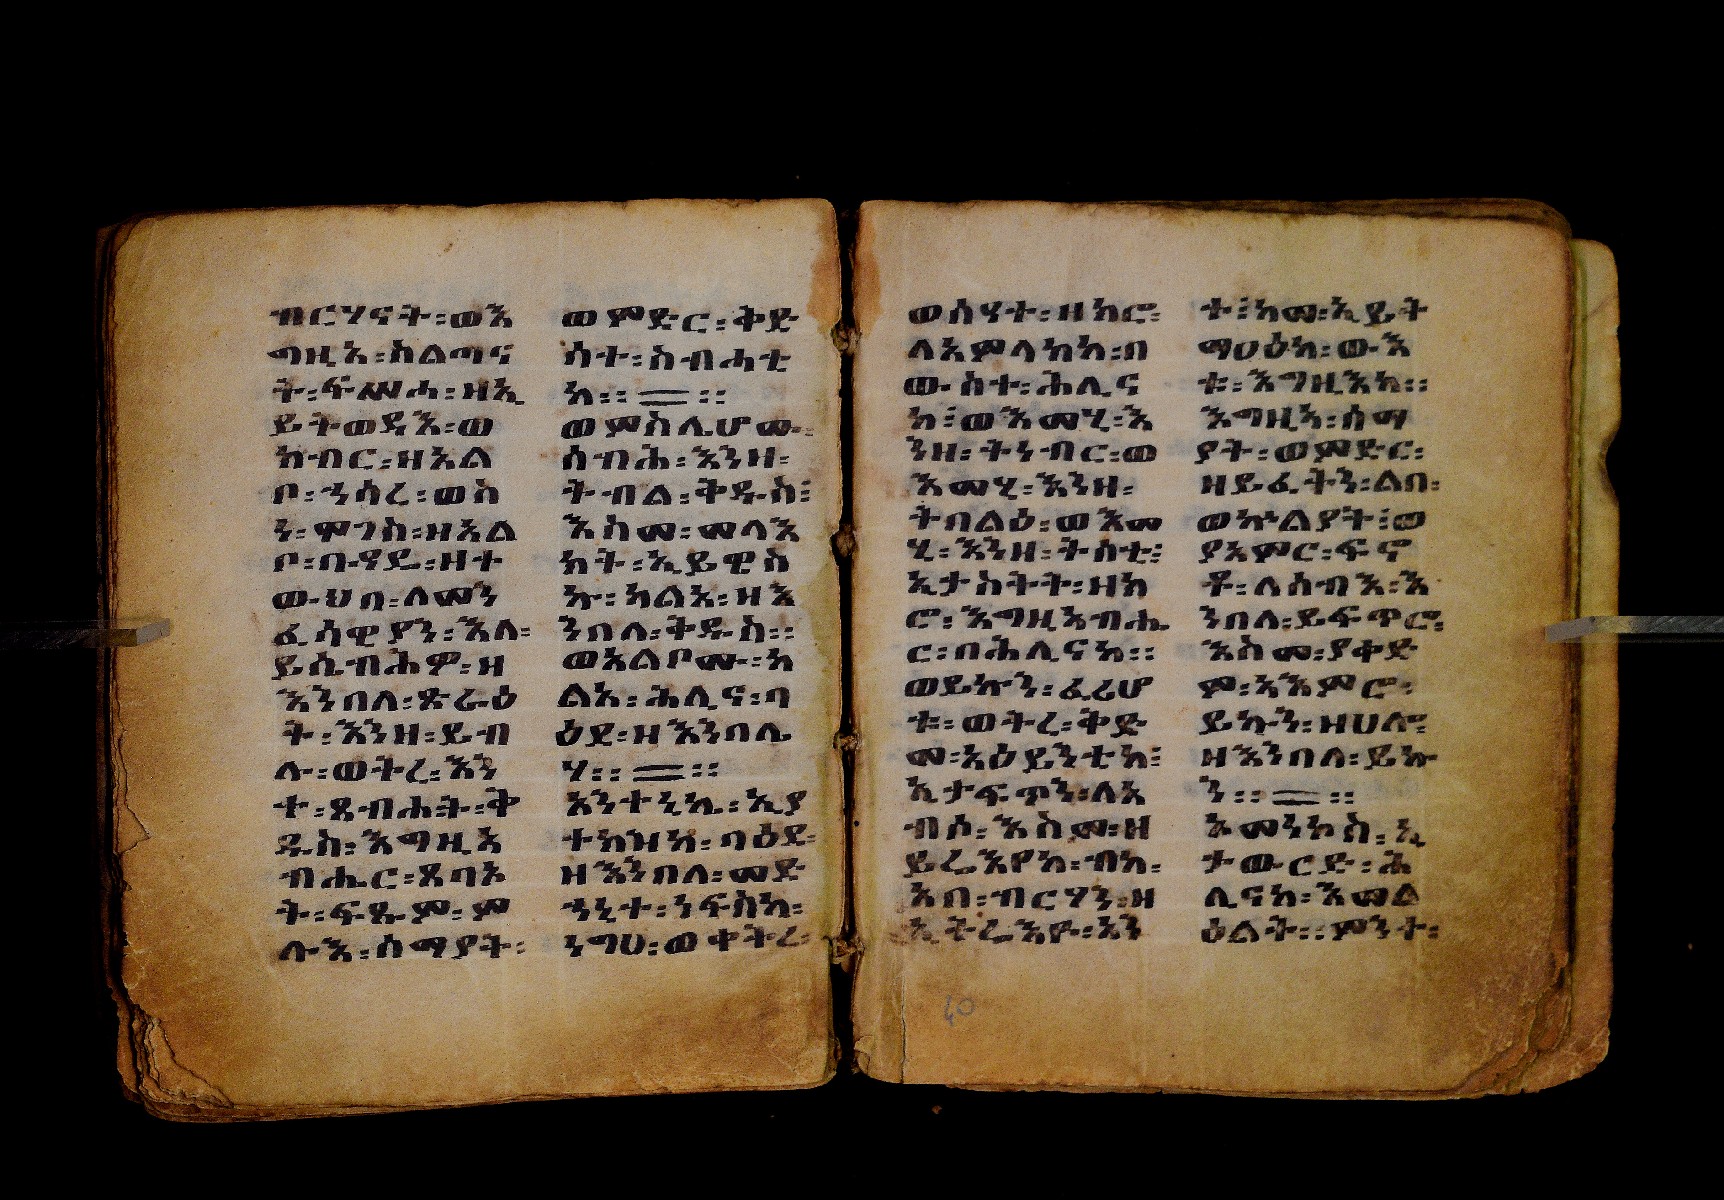 ብርሃናት፡ወእ
ግዚአ፡ስልጣና
ት፡ፍሡሐ፡ዘኢ
ይትወዳእ፡ወ
ክብር፡ዘአል
ቦ፡ኅሳረ፡ወስ
ን፡ሞገስ፡ዘአል
ቦ፡ቢዖይ፡ዘተ
ውህበ፡ለመን
ፈሳዊያን፡እለ፡
ይሲብሕዎ፡ዘ
እንበለ፡ጽሬዕ
ት፡እንዘ፡ይብ
ሉ፡ወትረ፡እን
ተ፡ጼብሐት፡ቅ
ዱስ፡እግዚአ
ብሔር፡ጸባኦ
ት፡ፍጹም፡ም
ሉእ፡ሰማያት፡
ወምድር፡ቅድ
ሳተ፡ስብሐቲ
ከ፡፡ ፡፡
ወምስሊሆሙ፡
ሰብሕ፡እንዘ፡
ትብል፡ቅዱስ፡
እስመ፡መላእ
ክት፡ኢይዌስ
ኩ፡ካልአ፡ዘእ
ንበለ፡ቅዱስ፡፡
ወአልቦሙ፡ካ
ልእ፡ሕሊና፡ባ
ዕደ፡ዘእንበሊ
ሃ፡፡ ፡፡
አንተኒኬ፡ኢያ
ተክዝከ፡ባዕደ፡
ዘእንበለ፡መድ
ኅኒተ፡ነፍስከ፡
ንግሀ፡ወቀትረ፡
ወሰሃተ፡ዘክሮ፡
ለአምላክከ፡በ
ውስተ፡ሕሊና
ከ፡ወእመሂ፡እ
ንዘ፡ትነብር፡ወ
እመሂ፡እንዘ፡
ትበልዕ፡ወእመ
ሂ፡እንዘ፡ትሰቲ፡
ኢታስትት፡ዘክ
ሮ፡እግዚአብሔ
ር፡በሕሊናከ፡፡
ወይኩን፡ፈሪሆ
ቱ፡ወትረ፡ቅድ
መ፡አዕይንቲከ፡
ኢታፍጥን፡ለእ
ብሶ፡እስመ፡ዘ
ይሬእየከ፡ብከ፡
እበ፡ብርሃን፡ዘ
ኢትሬእዮ፡አን
ተ፡ከመ፡ኢይት
ማሀዕከ፡ውእ
ቱ፡እግዚእከ፡፡
እግዚአ፡ሰማ
ያት፡ወምድር፡
ዘይፈትን፡ልበ፡
ወኵልያት፡ወ
ያአምር፡ፍኖ
ቶ፡ለሰብእ፡እ
ንበለ፡ይፍጥሮ፡
እስመ፡ያቀድ
ም፡አእምሮ፡
ይኩን፡ዘሀሎ፡
ዘእንበለ፡ይኩ
ን፡፡ ፡፡
እመነኮስ፡ኢ
ታውርድ፡ሕ
ሊናከ፡እመል
ዕልት፡፡ምንተ፡
40